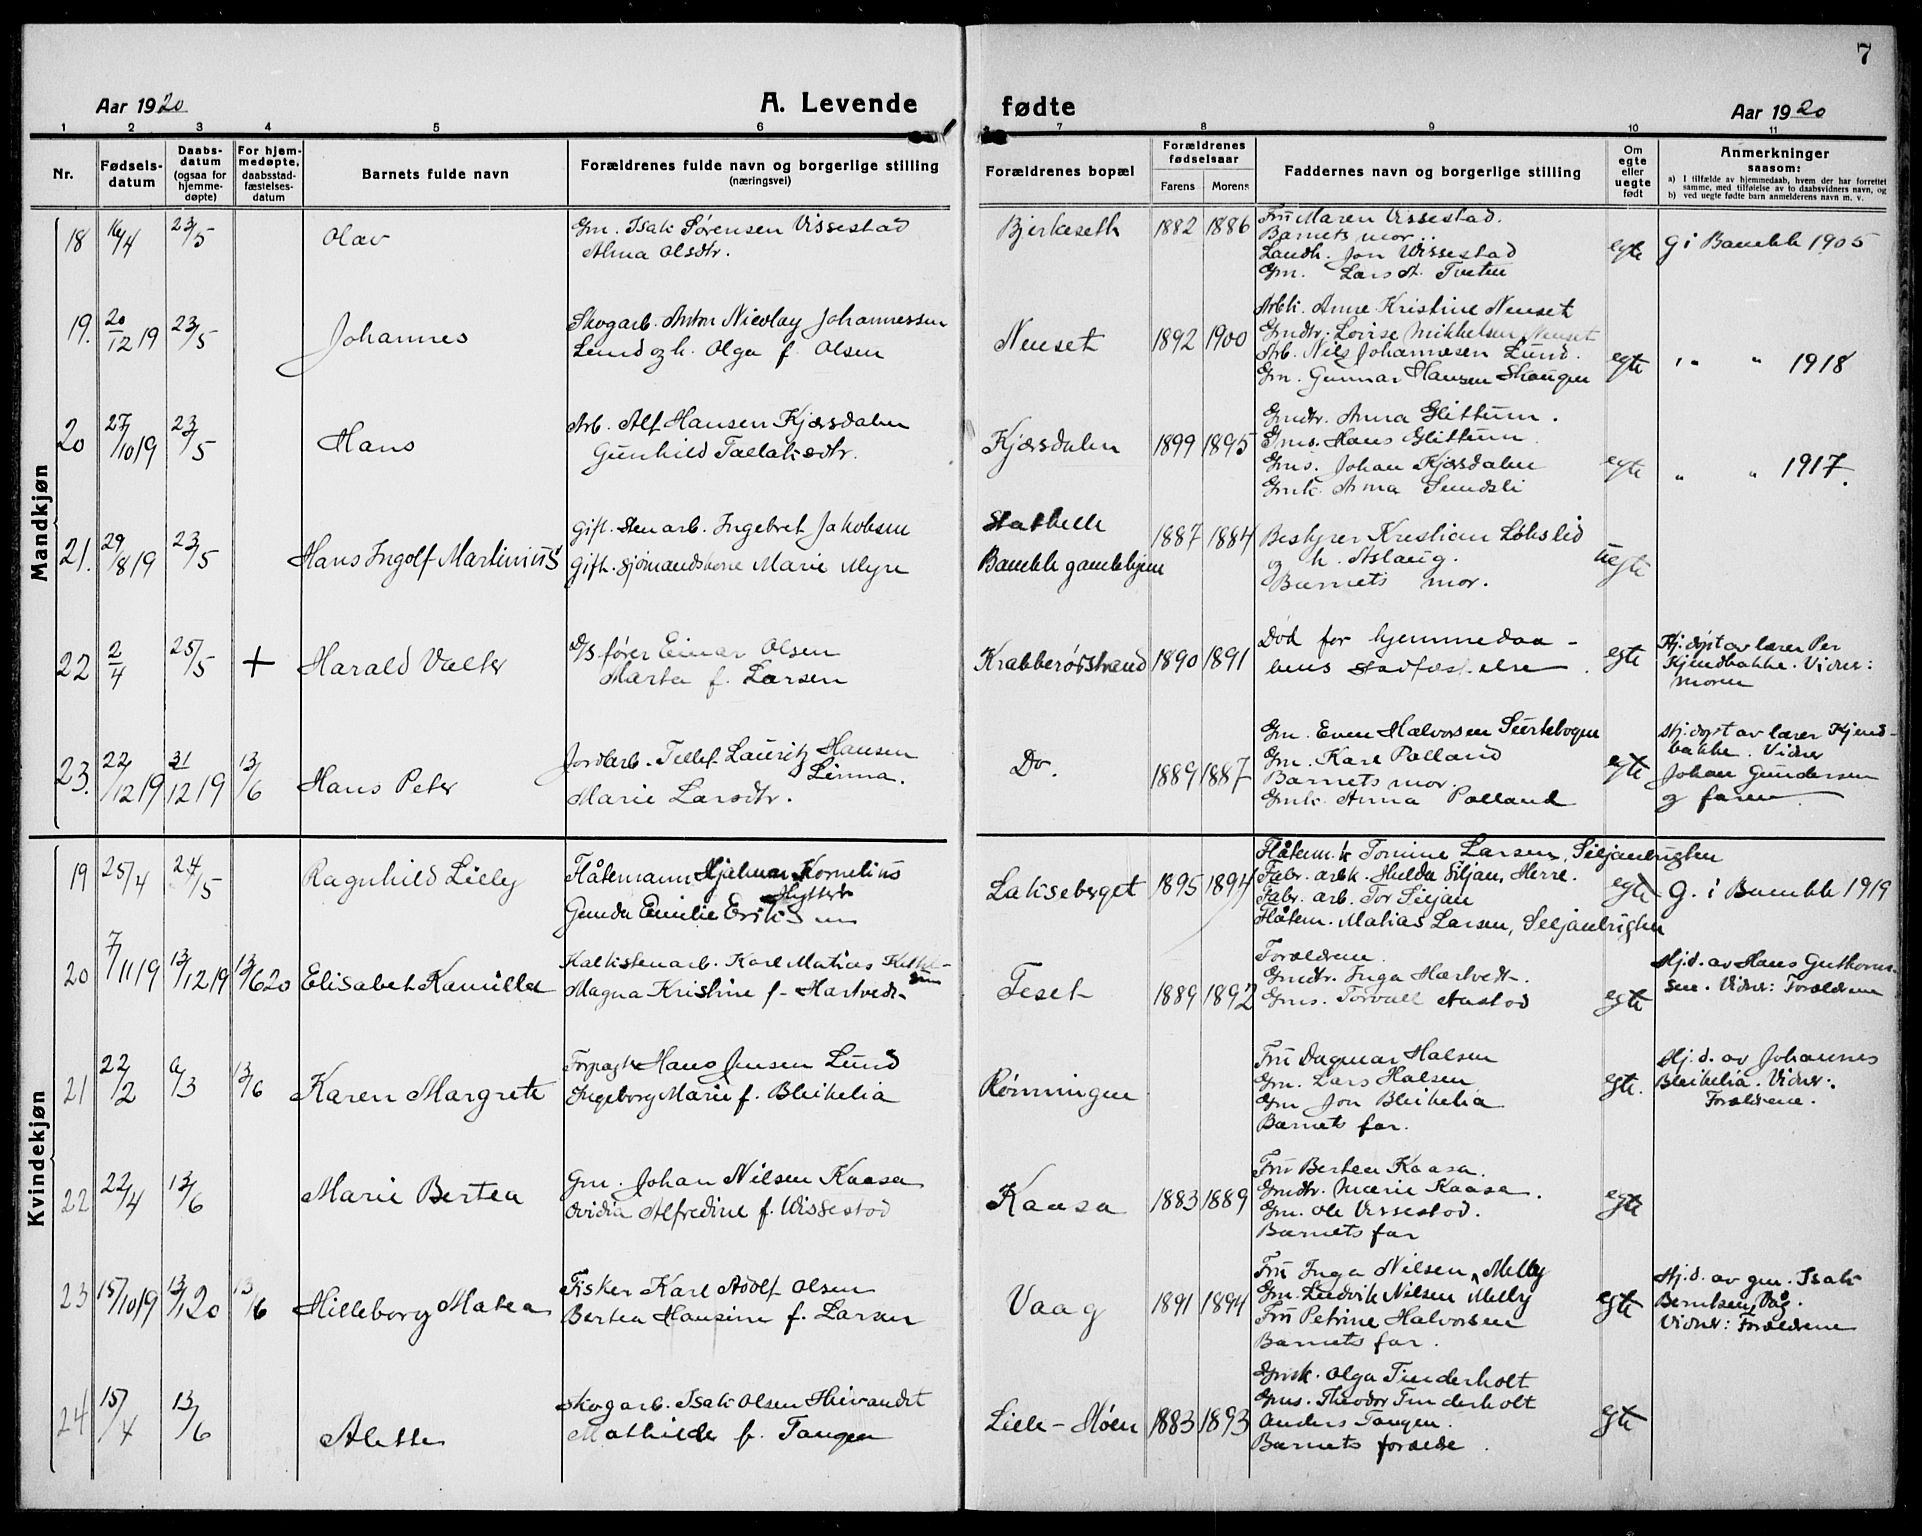 7
Aar 1920 A. Levende fødte Aar 1920
1 2 3 4 5 6 7 8 9 10 11
Nr. Fødselsdatum Daabsdatum (ogsaa for hjemmedøpte) For hjemmedøpte, daabsstadfæstelsesdatum Barnets fulde navn Forældrenes fulde navn og borgerlige stilling (næringsvei) Forældrenes bopæl Forældrenes fødselsaar Farens Morens Faddernes navn og borgerlige stilling Om egte eller uegte født Anmerkninger saasom:
a) I tilfælde av hjemmedaab, hvem der har forrettet samme, med tilføielse av to daabsvidners navn, og
b) ved uegte fødte barn anmelderens navn m. v.
Mandkjøn
18 16/4 23/5 Olav
Gm. Isak Sørensen Vissestad
Alma Olsdtr.
Bjerkeseth 1882 1886
Fru Maren Vissestad.
Barnets mor.
Landh. Jon Vissestad
Gm. Lars A. Tveten
egte G i Bamble 1905
19. 20/12 19 23/5 Johannes
Skogarb. Anton Nicolay Johannessen
Lund og h. Olga f. Olsen
Nenset 1892 1900
Arbk. Anne Kristine Nenset
Gmdtr. Lovise Mikkelsen Nenset
Arb. Nils Johannesen Lund.
Gm. Gunnar Hansen Skaugen
egte " " 1918
20 27/10 19 23/5 Hans
Arb. Alf Hansen Kjærsdalen
Gunhild Tallaksdtr.
Kjærsdalen 1899 1895
Gmdtr. Anna Glittum.
Gms. Hans Glittum
Gms. Johan Kjærsdalen
Gmk. Anna Sundsli
egte " " 1917.
21. 29/8 19 23/5 Hans Ingolf Martinius
Gift. Stenarb. Ingebret Jakobsen
Gift. Sjømandskone Marie Myre
Stathelle
Bamble gamlehjem
1887 1884
Bestyrer Kristian Løkslid
og h. Aslaug.
Barnets mor.
uegte
22 2/4 25/5 + Harald Valter
D/S fører Einar Olsen
Marta f. Larsen
Krabberødstrand 1890 1891
Død før hjemmedaabens stadfæstelse.
egte
Hj. døpt av lærer Per
Kjendbakke. Vidner:
moren
23. 22/12 19 31/12 19 13/6 Hans Peter
Jordarb. Tellef Lauritz Hansen
Linna.
Marie Larsdtr.
Do. 1889 1887
Gm. Even Halvorsen Surtebogen
Gm. Karl Palland
Barnets mor.
Gmk. Anna Palland
egte
Hj. døpt av lærer Kjendbakke. Vidner
Johan Gundersen
og faren.
Kvindekjøn
19 25/4 24/5 Ragnhild Lilly
Flåtemann Hjalmar Kornelius
Hytter
Gunda Emilie Eriksen
Lakseberget 1895 1894
Flåtem.k Tomine Larsen, Siljanbrigden
Fabr. arbk. Hulda Siljan, Herre.
Fabr. arb. Tor Siljan
Flåtem. Matias Larsen, Siljanbrigden
egte G. i Bamble 1919
20 7/11 19 13/12 19 13/6 20 Elisabet Kamilla
Kalkstenarb. Karl Matias Kittilsen
Magna Kristine f. Hartvedt
Feset 1889 1892
Forældrene.
Gmdtr. Inga Hartvedt.
Gms. Torvall Aastad
egte
Hj.d. av Hans Guttormsen. Vidner: Forældrene
21 22/2 9/3 13/6 Karen Margrete
Forpagter Hans Jensen Lund
Ingeborg Marie f. Bleikelia
Rønningen
Fru Dagmar Halsen
Gm. Lars Halsen
Gm Jon Bleikelia
Barnets far.
egte.
Hj.d. av Johannes
Bleikelia. Vidner:
Forældrene.
22 22/4 13/6 Marie Bertea
Gm. Johan Nilsen Kaasa
Ovidia Alfredine f. Vissestad
Kaasa 1883 1889
Fru Bertea Kaasa.
Gmdtr. Marie Kaasa.
Gm. Ole Vissestad.
Barnets far
egte
23 15/10 19 13/1 20 13/6 Hilleborg Matea
Fisker Karl Adolf Olsen
Bertea Hansine f. Larsen
Vaag 1891 1894
Fru Inga Nilsen, Melby
Gm. Ludvik Nilsen Melby
Fru Petrine Halvorsen
Barnets far.
egte
Hj.d. av gm. Isak
Berntsen Våg.
Vidner: Forældrene
24 15/4 13/6 Alette
Skogarb. Isak Olsen
Mathilde f. Tangen
Lille-Møen 1883 1893
Gmk. Olga Finderholt
Gms. Theodor Finderholt
Anders Tangen.
Barnets forælde.
egte